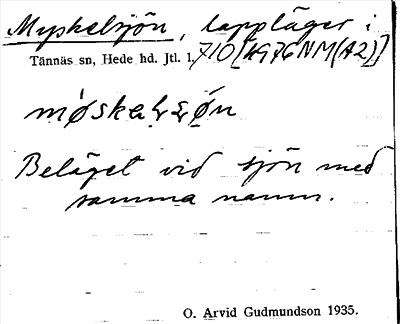 Myskelsjön, lappläger i
Tännäs sn, Hede hd. Jtl. l. 710 [4976 NM(A2)]
Beläget vid sjön med
samma namn.
O. Arvid Gudmundson 1935.